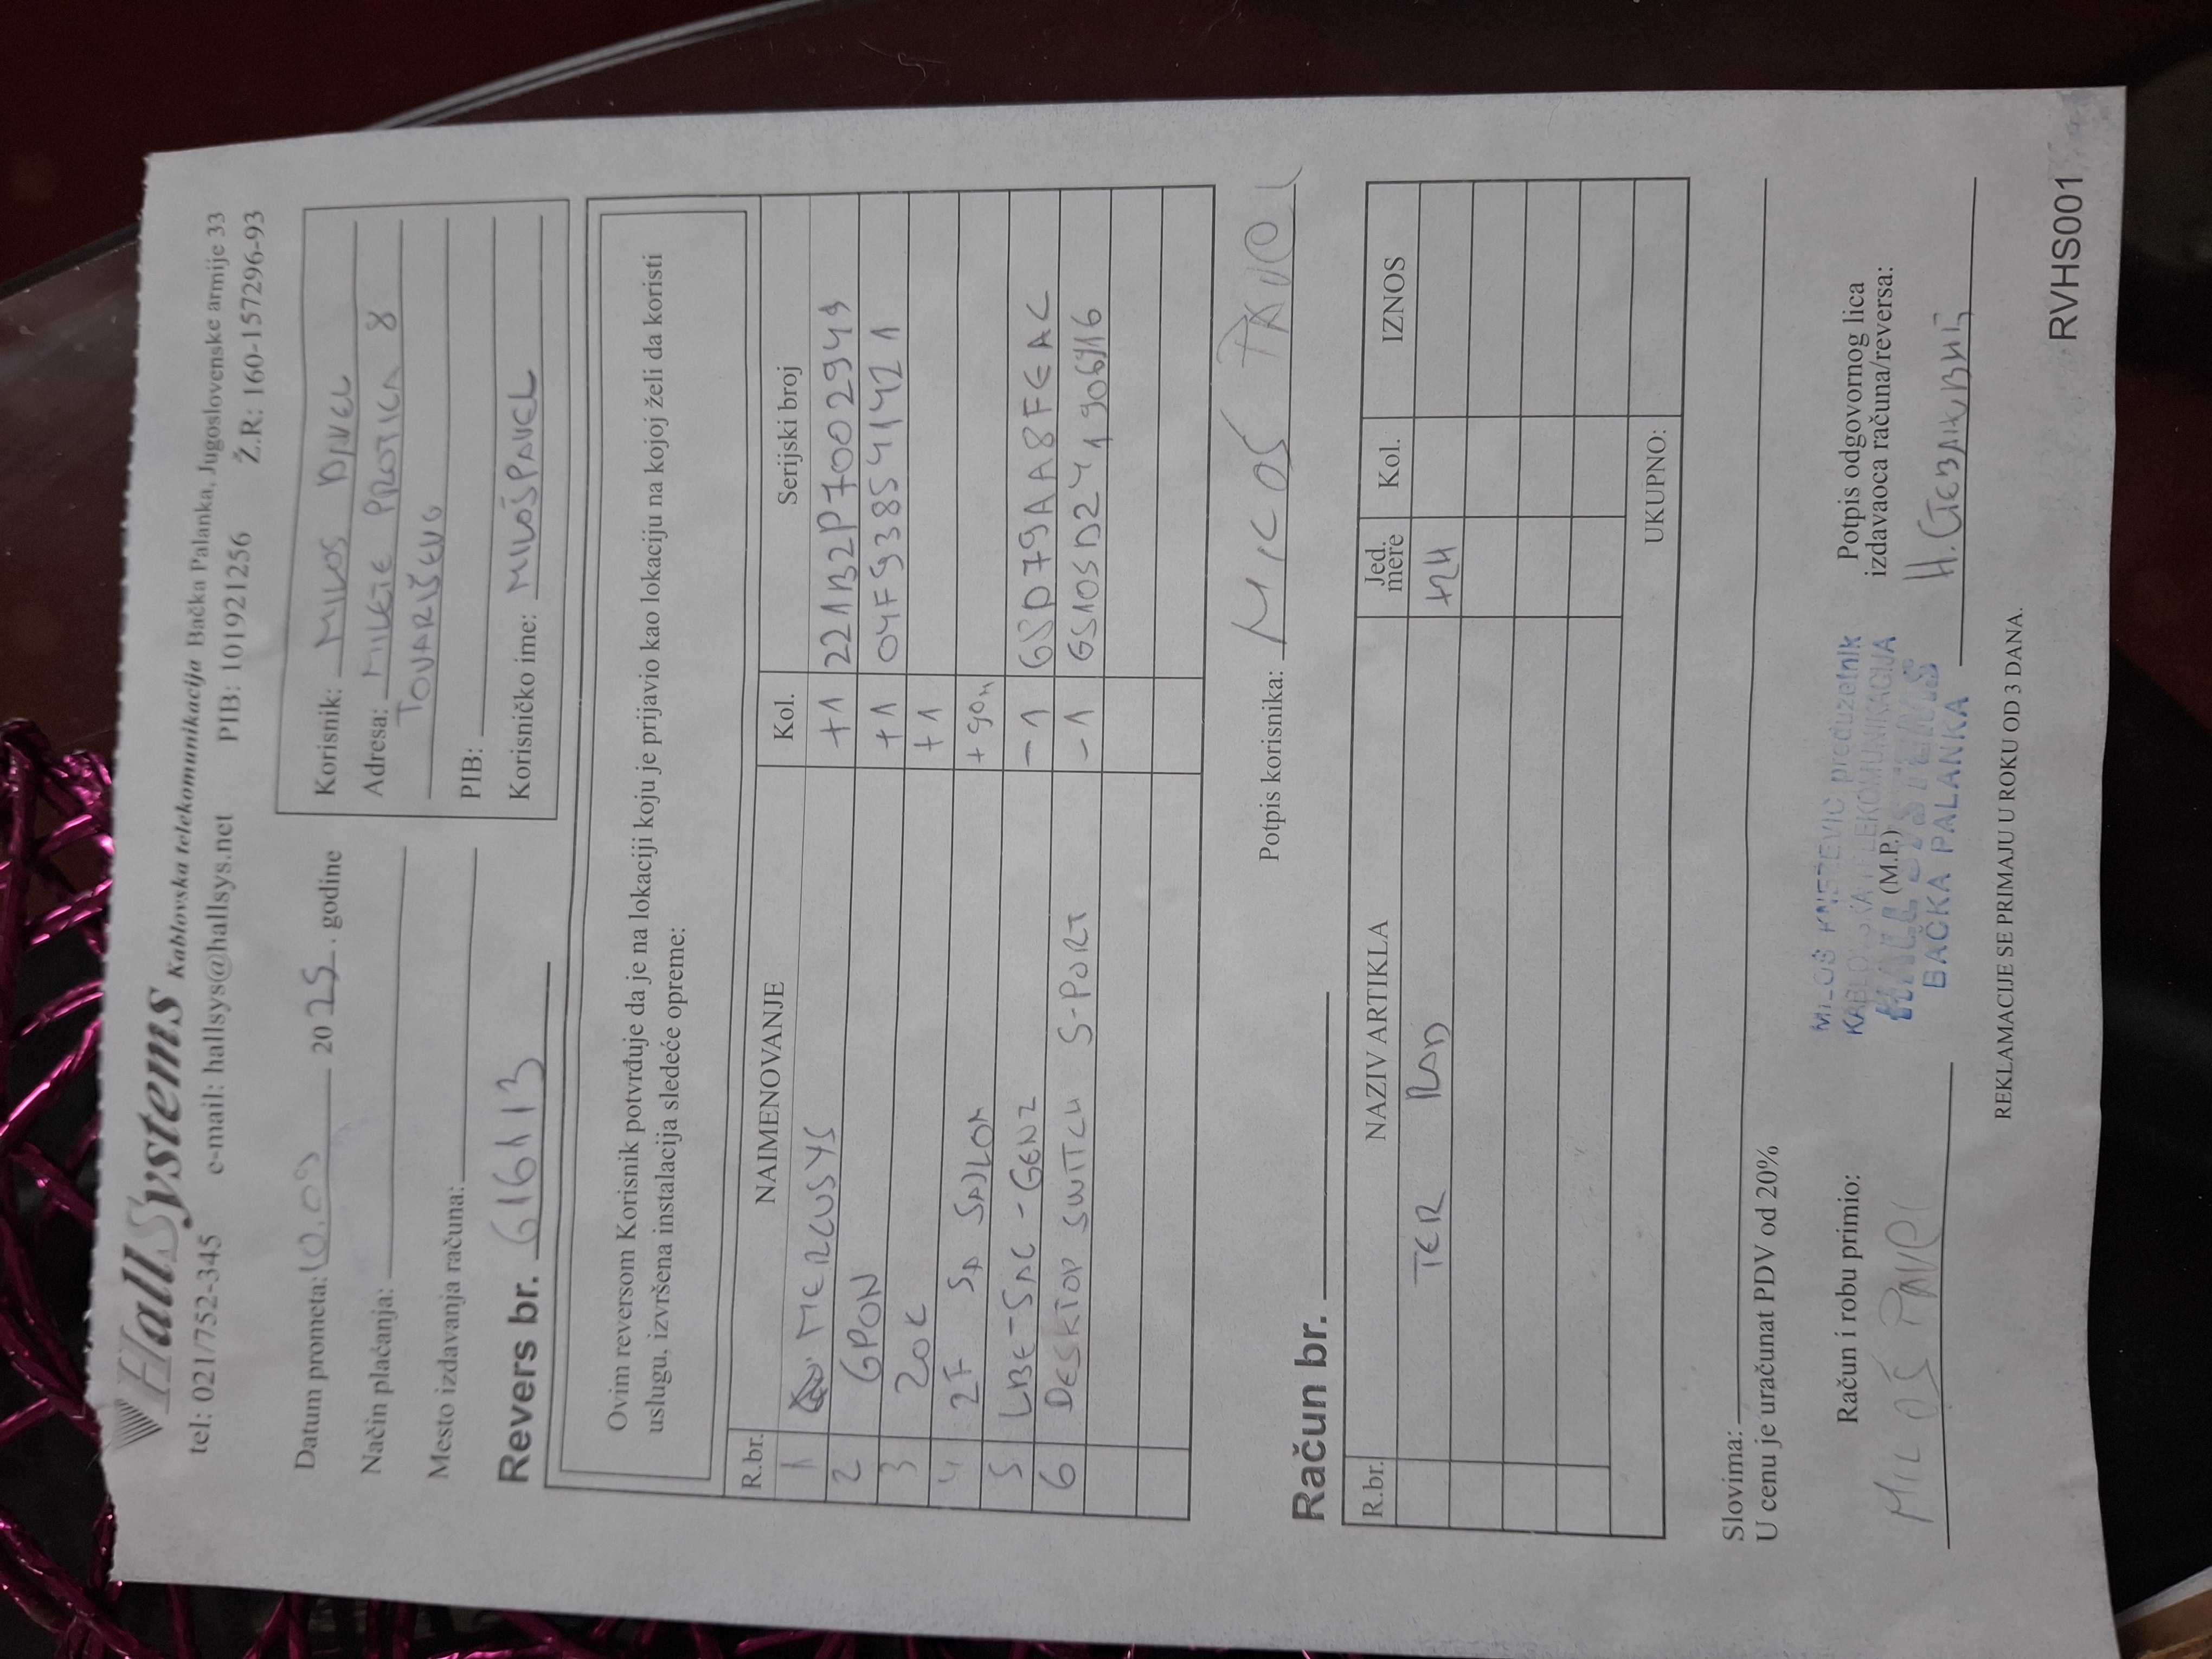 HallSystems Kablovska telekomunikacija Bačka Palanka, Jugoslovenske armije 33
tel: 021/752-345 e-mail: hallsys@hallsys.net PIB: 101921256 Ž.R: 160-157296-93
Datum prometa: 10.09 2025. godine
Način plaćanja:
Mesto izdavanja računa:
Revers br. 61613
Korisnik: MILOS PAVEL
Adresa: MILETE PROTICA 8
TOVARIŠEVO
PIB:
Korisničko ime: MILOŠPAVEL
Ovim reversom Korisnik potvrđuje da je na lokaciji koju je prijavio kao lokaciju na kojoj želi da koristi
uslugu, izvršena instalacija sledeće opreme:
R.br. NAIMENOVANJE Kol. Serijski broj
1 MERCUSYS +1 221B2P7002949
2 GPON +1 04F938541421
3 ZOK +1
4 2F SA SAJLOM +90m
5 LBE-5AC-GEN2 -1 65D79AA8FEAC
6 DESKTOP SWITCH 5-PORT -1
Potpis korisnika: MILOS PAVEL
Račun br.
R.br. NAZIV ARTIKLA Jed. mere Kol. IZNOS
TER RAD +2H
UKUPNO:
Slovima:
U cenu je uračunat PDV od 20%
Račun i robu primio:
MILOŠ PAVEL
MILOŠ KNEŽEVIĆ preduzetnik
KABLOVSKA TELEKOMUNIKACIJA
HALL SYSTEMS
(M.P.)
BAČKA PALANKA
Potpis odgovornog lica
izdavaoca računa/reversa:
REKLAMACIJE SE PRIMAJU U ROKU OD 3 DANA.
RVHS001